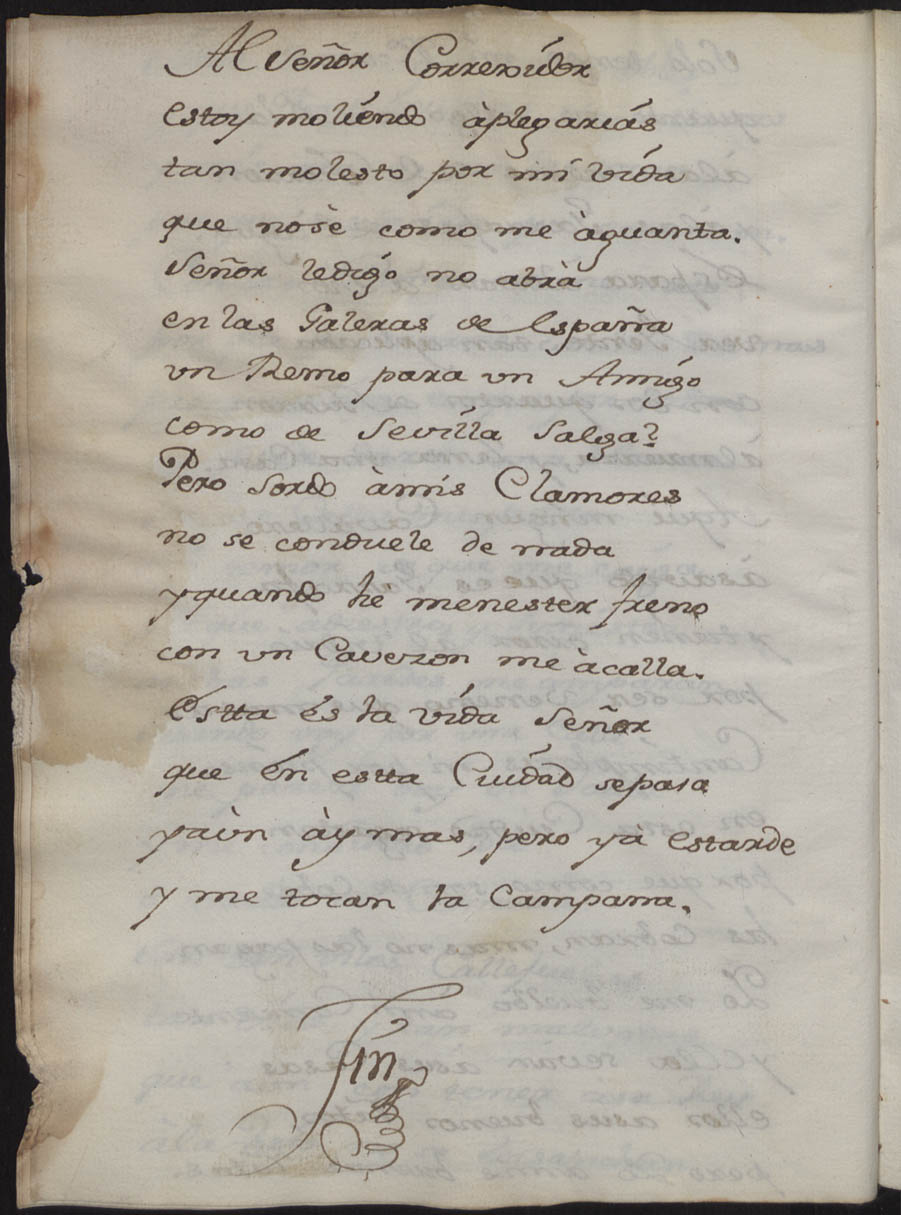 Al Señor Correxidor
estoy moliendo à plegariás
tan molesto por mi vida
que nosè como me àguanta.
Señor ledigo no abrà
en las Galeras de España
un Remo para un Amigo
como de Sevilla Salga?
Pero Sordo àmis Clamores
no se conduele de nada
yquando hé menester freno
con un Cavezon me àcalla.
Éstta és la vida Señor
que én estta Ciudad sepasa
yaùn ày mas, pero ya estarde
y me tocan la Campana.
Fin